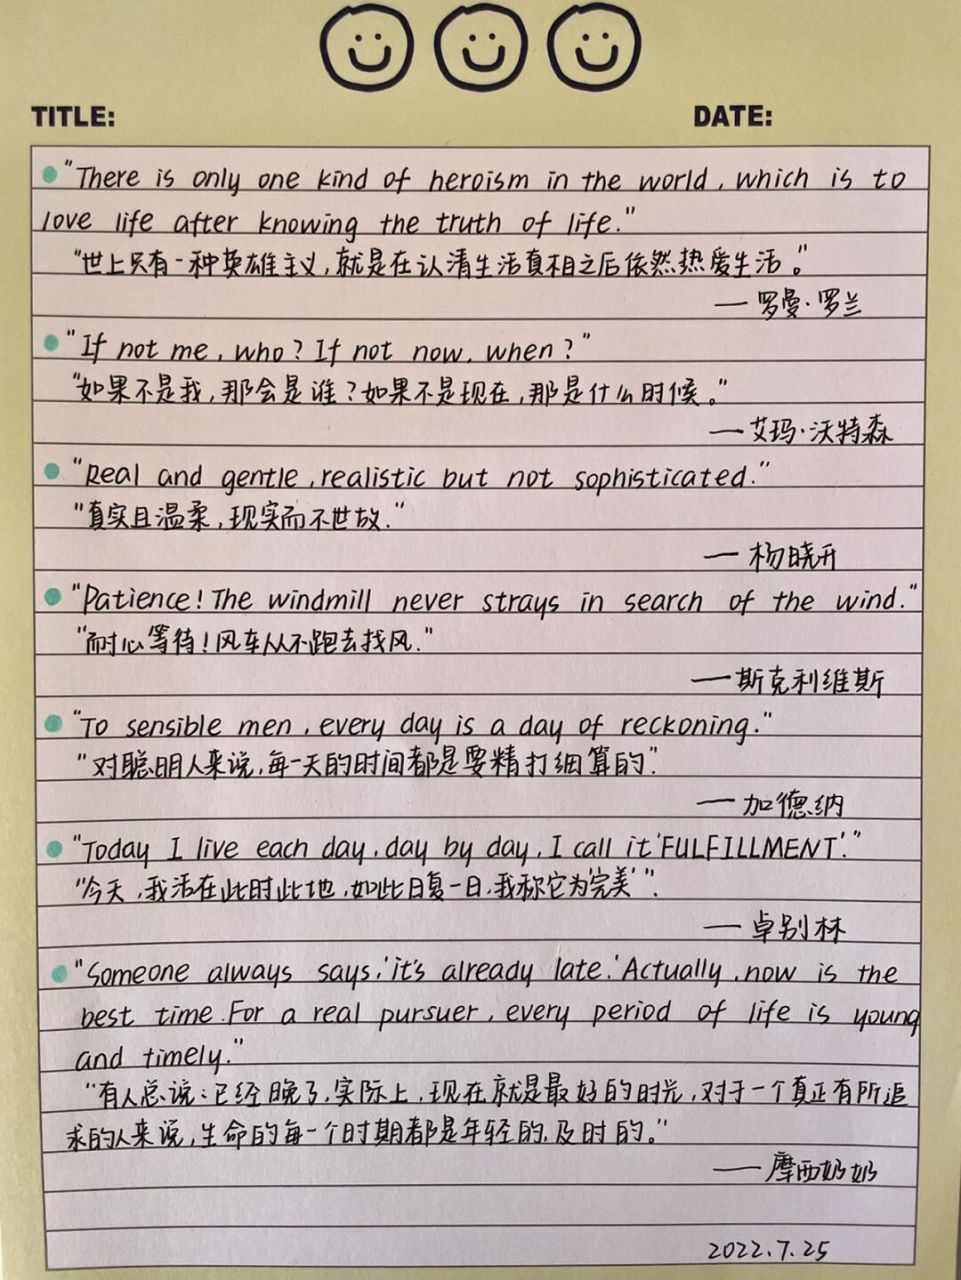 TITLE:
DATE:
"There is only one kind of heroism in the world, which is to
love life after knowing the truth of life."
"世上只有一种英雄主义,就是在认清生活真相之后依然热爱生活。"
— 罗曼·罗兰
"If not me, who? If not now, when?"
"如果不是我,那会是谁?如果不是现在,那是什么时候。"
— 艾玛·沃特森
"Real and gentle, realistic but not sophisticated."
"真实且温柔,现实而不世故."
— 杨晓开
"Patience! The windmill never strays in search of the wind."
"耐心等待!风车从不跑去找风."
— 斯克利维斯
"To sensible men, every day is a day of reckoning."
"对聪明人来说,每一天的时间都是要精打细算的".
— 加德纳
"Today I live each day, day by day, I call it 'FULFILLMENT'."
"今天,我活在此时此地,如此日复一日,我称它为'完美'".
— 卓别林
"Someone always says,'it's already late.' Actually, now is the
best time. For a real pursuer, every period of life is young
and timely."
"有人总说:已经晚了,实际上,现在就是最好的时光,对于一个真正有所追
求的人来说,生命的每一个时期都是年轻的,及时的。"
— 摩西奶奶
2022.7.25